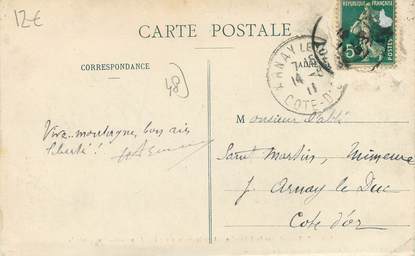 12€
CARTE POSTALE
RÉPUBLIQUE FRANÇAISE
5
POSTES
ARNAY LE
14
11
COTE-D'
CORRESPONDANCE
48
Vive montagne, bon air
liberté!
Monsieur l'abbé
Saint Martin, Mimeure
p. Arnay le Duc
Cote d'or